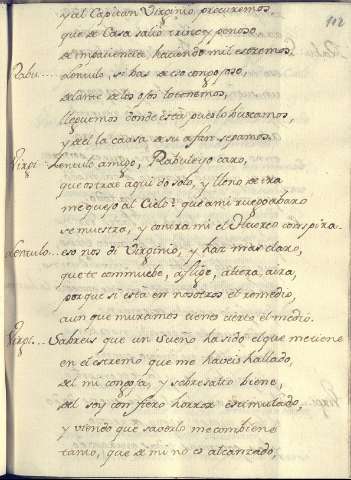 112
y al Capitan Virginio procuremos,
que de Casa salio triste y penoso
de impaciencia haciendo mil estremos.
Rabu... Lentulo, si has de eso congojoso,
delante de los ojos lo tenemos,
lleguemos donde está pues lo buscamos,
y de el la causa de su afan sepamos.
Virgi.. Lentulo amigo, Rabuleyo caro,
que os trae aqui do solo, y lleno de ira
me quejo al Cielo? que a mi ruego abaro
se muestra, y contra mi el Huerco conspira.
Lentulo... eso nos di Virginio, y haz mas claro,
que te commuebe, aflige, altera, aira,
porque si está en nosotros el remedio,
aun que muramos tienes cierto el medio.
Virgi... Sabreis que un Sueño ha sido el que me tiene
en el estremo que me haveis hallado,
del mi congoja, y sobresalto biene,
del soy con fiero horror estimulado,
y viendo que saverlo me combiene
tanto, que de mi no es alcanzado,